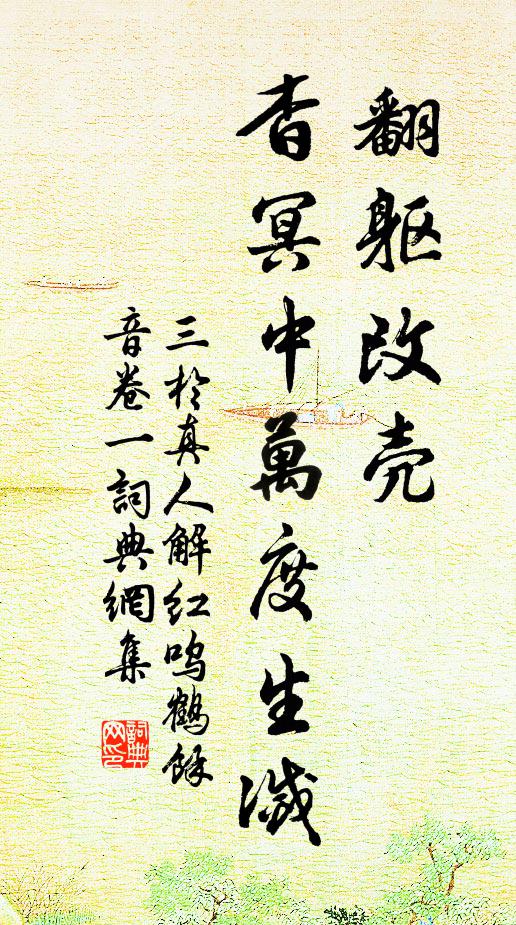 翻躯改壳
杳冥中萬度生滅
三於真人解红鸣鶴餘
音卷一詞典網集
詞典
网印